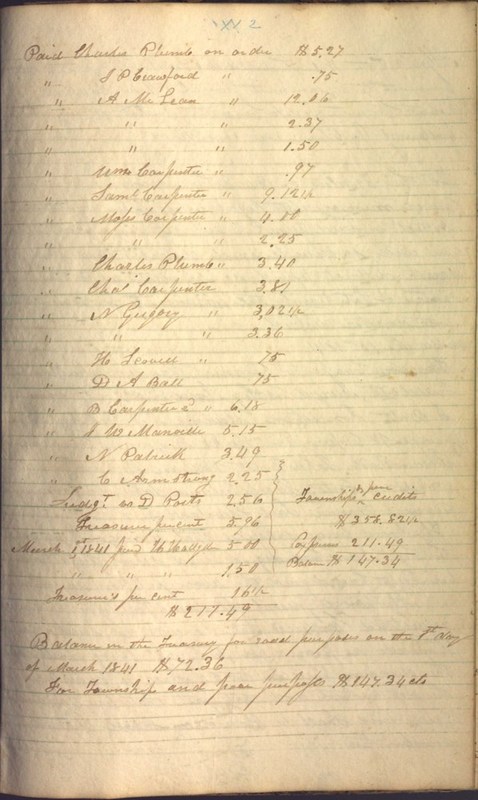 Paid Charles Plumb on order $5.27
" S P Crawford " .75
" A Mc Lean " 12.06
" " " 2.37
" " " 1.50
" Wm Carpenter " .97
" Saml Carpenter " 9.12½
" Moses Carpenter " 4.00
" " " 2.25
" Charles Plumb " 3.40
" Chas Carpenter 3.81
" N Gregory " 3,02½
" " " 3.36
" H Scovill " 75
" D A Ball 75
" B Carpenter 2d " 6.18
" J W Manvill 5.15
" N Patrick 3.49
" C Armstrong 2.25
Judgt vs D Roots 2.56
Treasurer percent 5.96
March 1st 1841 paid 5.00
" " " 1,50
Treasurer's per cent 16½
$211.49
Township & poor Credits
$358.82½
Expenses 211.49
Balance $147.34
Balance in the Treasury for road purposes on the 1st day
of March 1841 $72.36
For Township and poor purposes $147.34 cts